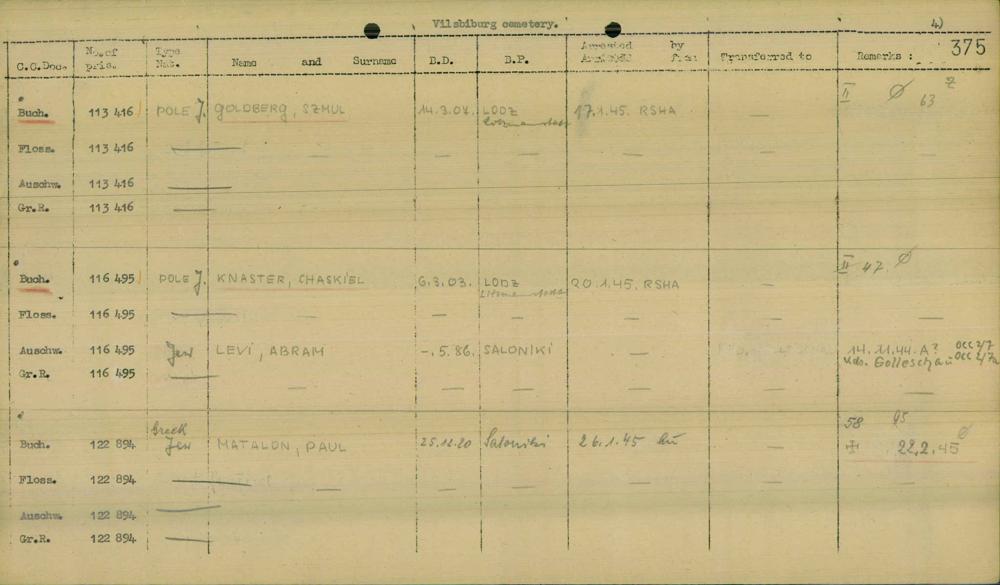 Vilsbiburg cemetery.
4)
375
C.C.Doc. No.of pris. Type Nat. Name and Surname B.D. B.P. Arrested by Transferred to Remarks :
II Ø 63 Z
Buch. 113 416 POLE J. GOLDBERG, SZMUL 14.3.07. LODZ 17.1.45. RSHA —
Floss. 113 416 — — — — — — —
Auschw. 113 416 —
Gr.R. 113 416 —
II 47. Ø
Buch. 116 495 POLE J. KNASTER, CHASKIEL 6.3.03. LODZ 20.1.45. RSHA —
Floss. 116 495 — — — — — — —
Auschw. 116 495 Jew LEVI, ABRAM -.5.86. SALONIKI — 14.11.44. A? OCC 2/7
Kdo. Golleschau OCC 2/7a
Gr.R. 116 495 — — — — — — —
Greek
58 95
Buch. 122 894 Jew MATALON, PAUL 25.12.20 Saloniki 26.1.45 — 22.2.45 Ø
Floss. 122 894 — — — — — — —
Auschw. 122 894 —
Gr.R. 122 894 —